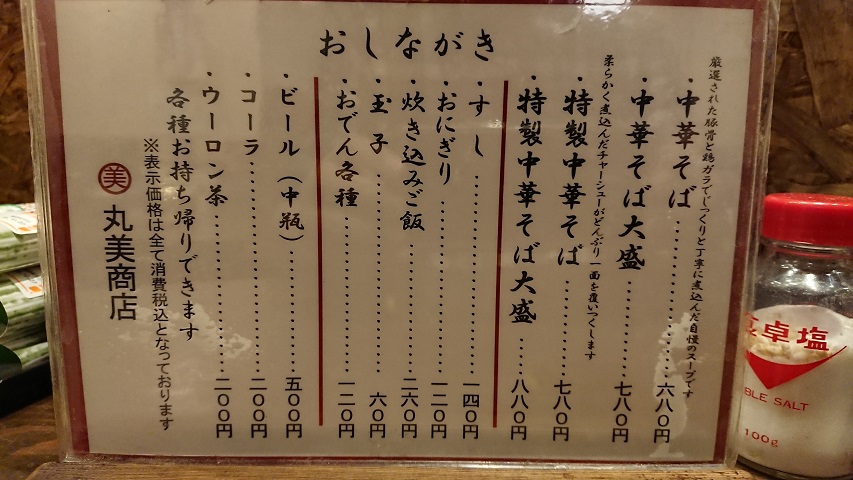 おしながき
厳選された豚骨と鶏ガラでじっくりと丁寧に煮込んだ自慢のスープです
・中華そば…………六八〇円
・中華そば大盛……七八〇円
柔らかく煮込んだチャーシューがどんぶり一面を覆いつくします
・特製中華そば……七八〇円
・特製中華そば大盛…八八〇円
・すし…………一四〇円
・おにぎり…………一二〇円
・炊き込みご飯……二六〇円
・玉子…………六〇円
・おでん各種………一二〇円
・ビール（中瓶）……五〇〇円
・コーラ…………二〇〇円
・ウーロン茶………二〇〇円
各種お持ち帰りできます
※表示価格は全て消費税込となっております
美 丸美商店
卓塩
BLE SALT
100g